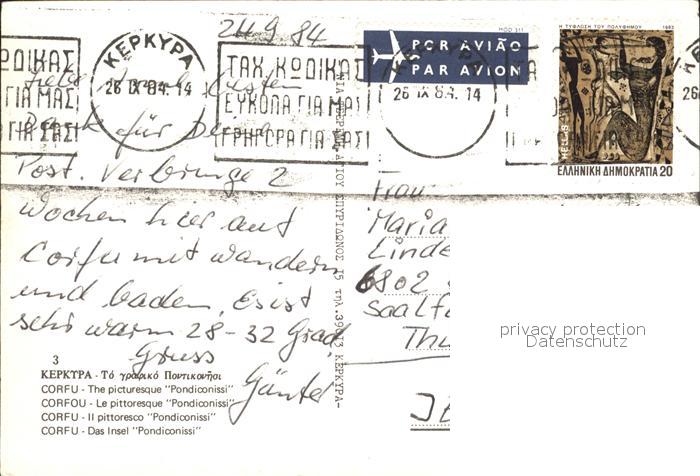 24.9.84
ΚΕΡΚΥΡΑ
26 IX 84. 14
ΤΑΧ. ΚΩΔΙΚΑΣ
ΕΥΚΟΛΑ ΓΙΑ ΜΑΣ
ΓΡΗΓΟΡΑ ΓΙΑ ΣΑΣ!
ΩΔΙΚΑΣ
ΓΙΑ ΜΑΣ
ΓΙΑ ΣΑΣ!
MOD 311
POR AVIÃO
PAR AVION
26 IX 84. 14
Η ΤΥΦΛΩΣΗ ΤΟΥ ΠΟΛΥΦΗΜΟΥ 1983
HELLAS
ΕΛΛΗΝΙΚΗ ΔΗΜΟΚΡΑΤΙΑ 20
Liebe
Dank für Deine
Post. Verbringe 2
Wochen hier auf
Corfu mit wandern
und baden. Es ist
sehr warm 28-32 Grad
Gruss
Günter
Frau
Maria
Linde
6802
Saalf
Thü
ΑΓΙΟΥ ΣΠΥΡΙΔΩΝΟΣ 15 τηλ. ΚΕΡΚΥΡΑ
3
ΚΕΡΚΥΡΑ - Τό γραφικό Ποντικονῆσι
CORFU - The picturesque "Pondiconissi"
CORFOU - Le pittoresque "Pondiconissi"
CORFU - Il pittoresco "Pondiconissi"
CORFU - Das Insel "Pondiconissi"
privacy protection
Datenschutz